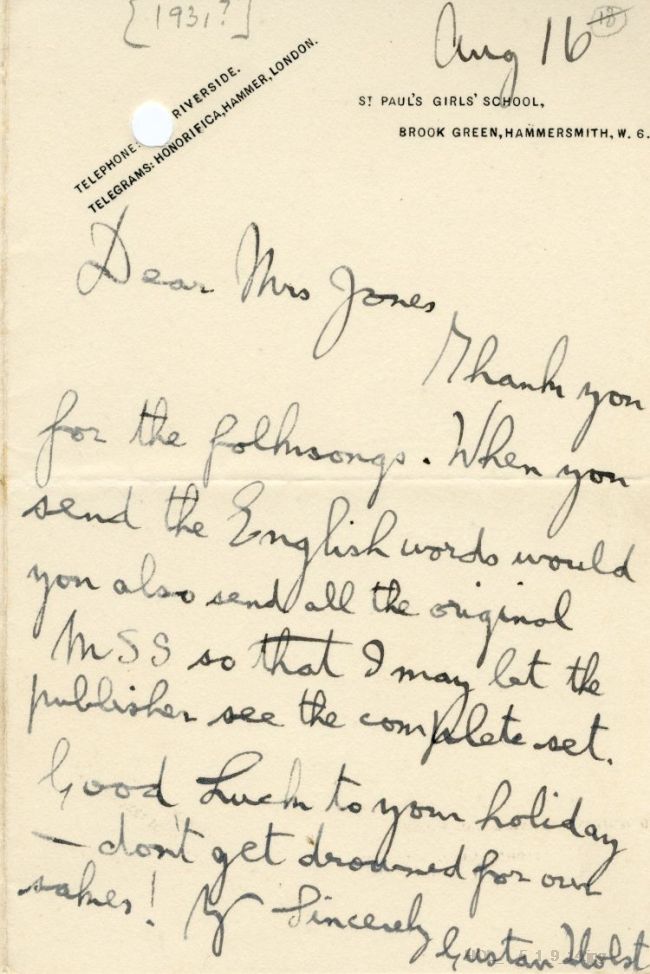 [1931?]
Aug 16
18
TELEPHONE: RIVERSIDE.
TELEGRAMS: HONORIFICA, HAMMER, LONDON.
ST PAUL'S GIRLS' SCHOOL,
BROOK GREEN, HAMMERSMITH, W. 6.
Dear Mrs Jones
Thank you
for the folksongs. When you
send the English words would
you also send all the original
MSS so that I may let the
publisher see the complete set.
Good Luck to your holiday
— don't get drowned for our
sakes! Yr Sincerely
Gustav Holst